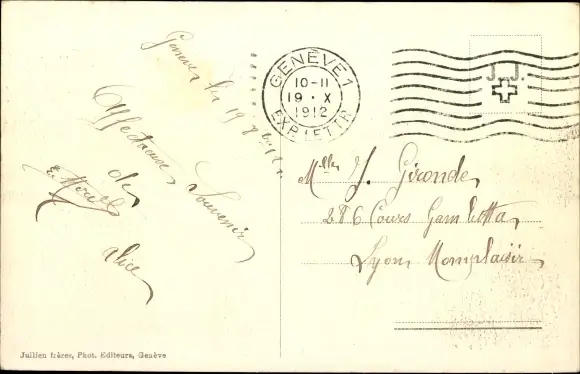 Genève le 19
Affectueux Souvenir
de
Alice
GENÈVE 1
10-11
19 · X
1912
EXP. LETTR
J. J.
Mlle J. Gironde
286 Cours Gambetta
Lyon Monplaisir
Jullien frères, Phot. Editeurs, Genève